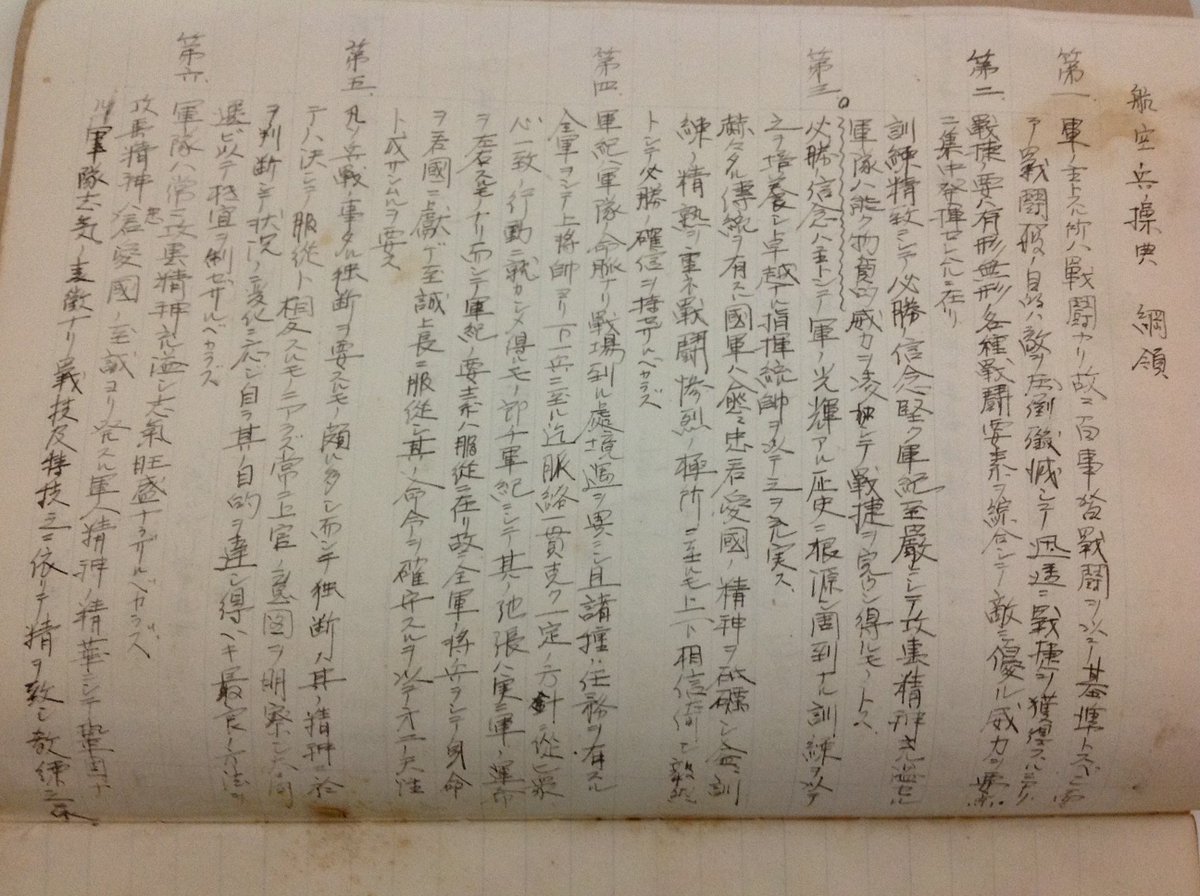 航空兵操典 綱領
第一、軍ノ主トスル所ハ戰闘ナリ故ニ百事皆戰闘ヲ以テ基準トスベシ而
シテ戰闘一般ノ目的ハ敵ヲ圧倒殲滅シテ迅速ニ戰捷ヲ獲得スルニアリ
第二、戰捷ノ要ハ有形無形ノ各種戰闘要素ヲ綜合シテ敵ニ優ル威力ヲ要点
ニ集中発揮セシムルニ在リ
訓練精致ニシテ必勝ノ信念堅ク軍紀至嚴ニシテ攻撃精神充溢セル
軍隊ハ能ク物質的威力ヲ凌駕シテ戰捷ヲ完ウシ得ルモノトス
第三、必勝ノ信念ハ主トシテ軍ノ光輝アル歴史ニ根源シ周到ナル訓練ヲ以テ
之ヲ培養シ卓越ナル指揮統帥ヲ以テ之ヲ充実ス
赫々タル傳統ヲ有スル國軍ハ愈々忠君愛國ノ精神ヲ砥礪シ益々訓
練ノ精熟ヲ重ネ戰闘惨烈ノ極所ニ至ルモ上下相信倚シ毅然
トシテ必勝ノ確信ヲ持セザルベカラズ
第四、軍紀ハ軍隊ノ命脈ナリ戰場到ル處境遇ヲ異ニシ且諸種ノ任務ヲ有スル
全軍ヲシテ上將帥ヨリ下一兵ニ至ル迄脈絡一貫克ク一定ノ方針ニ從ヒ衆
心一致ノ行動ニ就カシメ得ルモノ即チ軍紀ニシテ其ノ弛張ハ実ニ軍ノ運命
ヲ左右スルモノナリ而シテ軍紀ノ要素ハ服從ニ在リ故ニ全軍ノ將兵ヲシテ身命
ヲ君國ニ献ゲ至誠上長ニ服從シ其ノ命令ヲ確守スルヲ以テ第二ノ天性
ト成サシムルヲ要ス
第五、凡ソ兵戰ノ事タル独断ヲ要スルモノ頗ル多シ而シテ独断ハ其ノ精神ニ於
テハ決シテ服從ト相反スルモノニアラズ常ニ上官ノ意図ヲ明察シ大局
ヲ判断シテ状況ノ変化ニ応ジ自ラ其ノ目的ヲ達シ得ベキ最良ノ方法ヲ
選ビ以テ機宜ヲ制セザルベカラズ
第六、軍隊ハ常ニ攻撃精神充溢シ士氣旺盛ナラザルベカラズ
攻撃精神ハ忠君愛國ノ至誠ヨリ発スル軍人精神ノ精華ニシテ鞏固ナ
ル軍隊志氣ノ表徴ナリ武技及特技之ニ依リテ精ヲ致シ教練之ニ